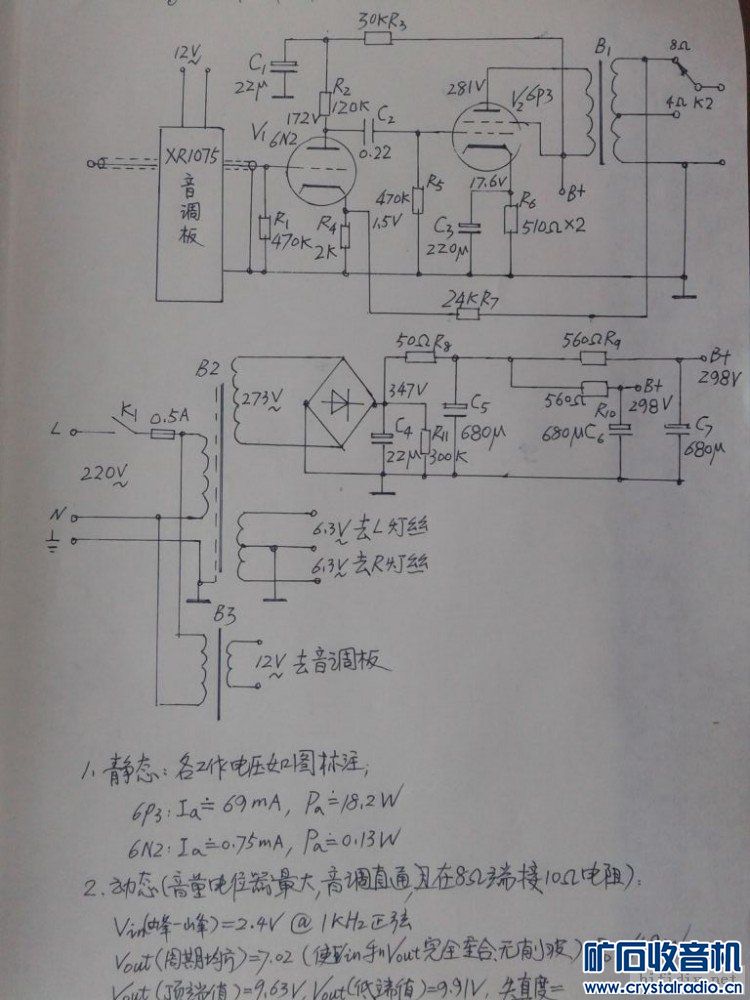 30KR3
B1
8Ω
12V~
C1
22μ
R2
120K
281V
V2 6P3
4Ω K2
172V
C2
V1
6N2
0.22
XR1075
音调板
17.6V
B+
R5
470K
1.5V
R6
510Ω×2
R1
470K
R4
2K
C3
220μ
24KR7
50ΩR8
560ΩR9
B+
298V
B2
273V~
347V
560Ω
R10
B+
298V
K1
0.5A
C4
22μ
R11
300K
C5
680μ
680μC6
C7
680μ
L
220V~
N
6.3V~去L灯丝
6.3V~去R灯丝
B3
12V~去音调板
1、静态：各工作电压如图标注；
6P3：Ia≐69mA，Pa≐18.2W
6N2：Ia≐0.75mA，Pa≐0.13W
2、动态(音量电位器最大，音调直通，且在8Ω端接10Ω电阻)：
Vin(峰-峰)=2.4V @ 1KHz正弦
Vout(周期均方)=7.02 (使Vin和Vout完全重合，无削波)
Vout(顶端值)=9.63V，Vout(低端值)=9.91V，失真度=
矿石收音机
www.crystalradio.cn